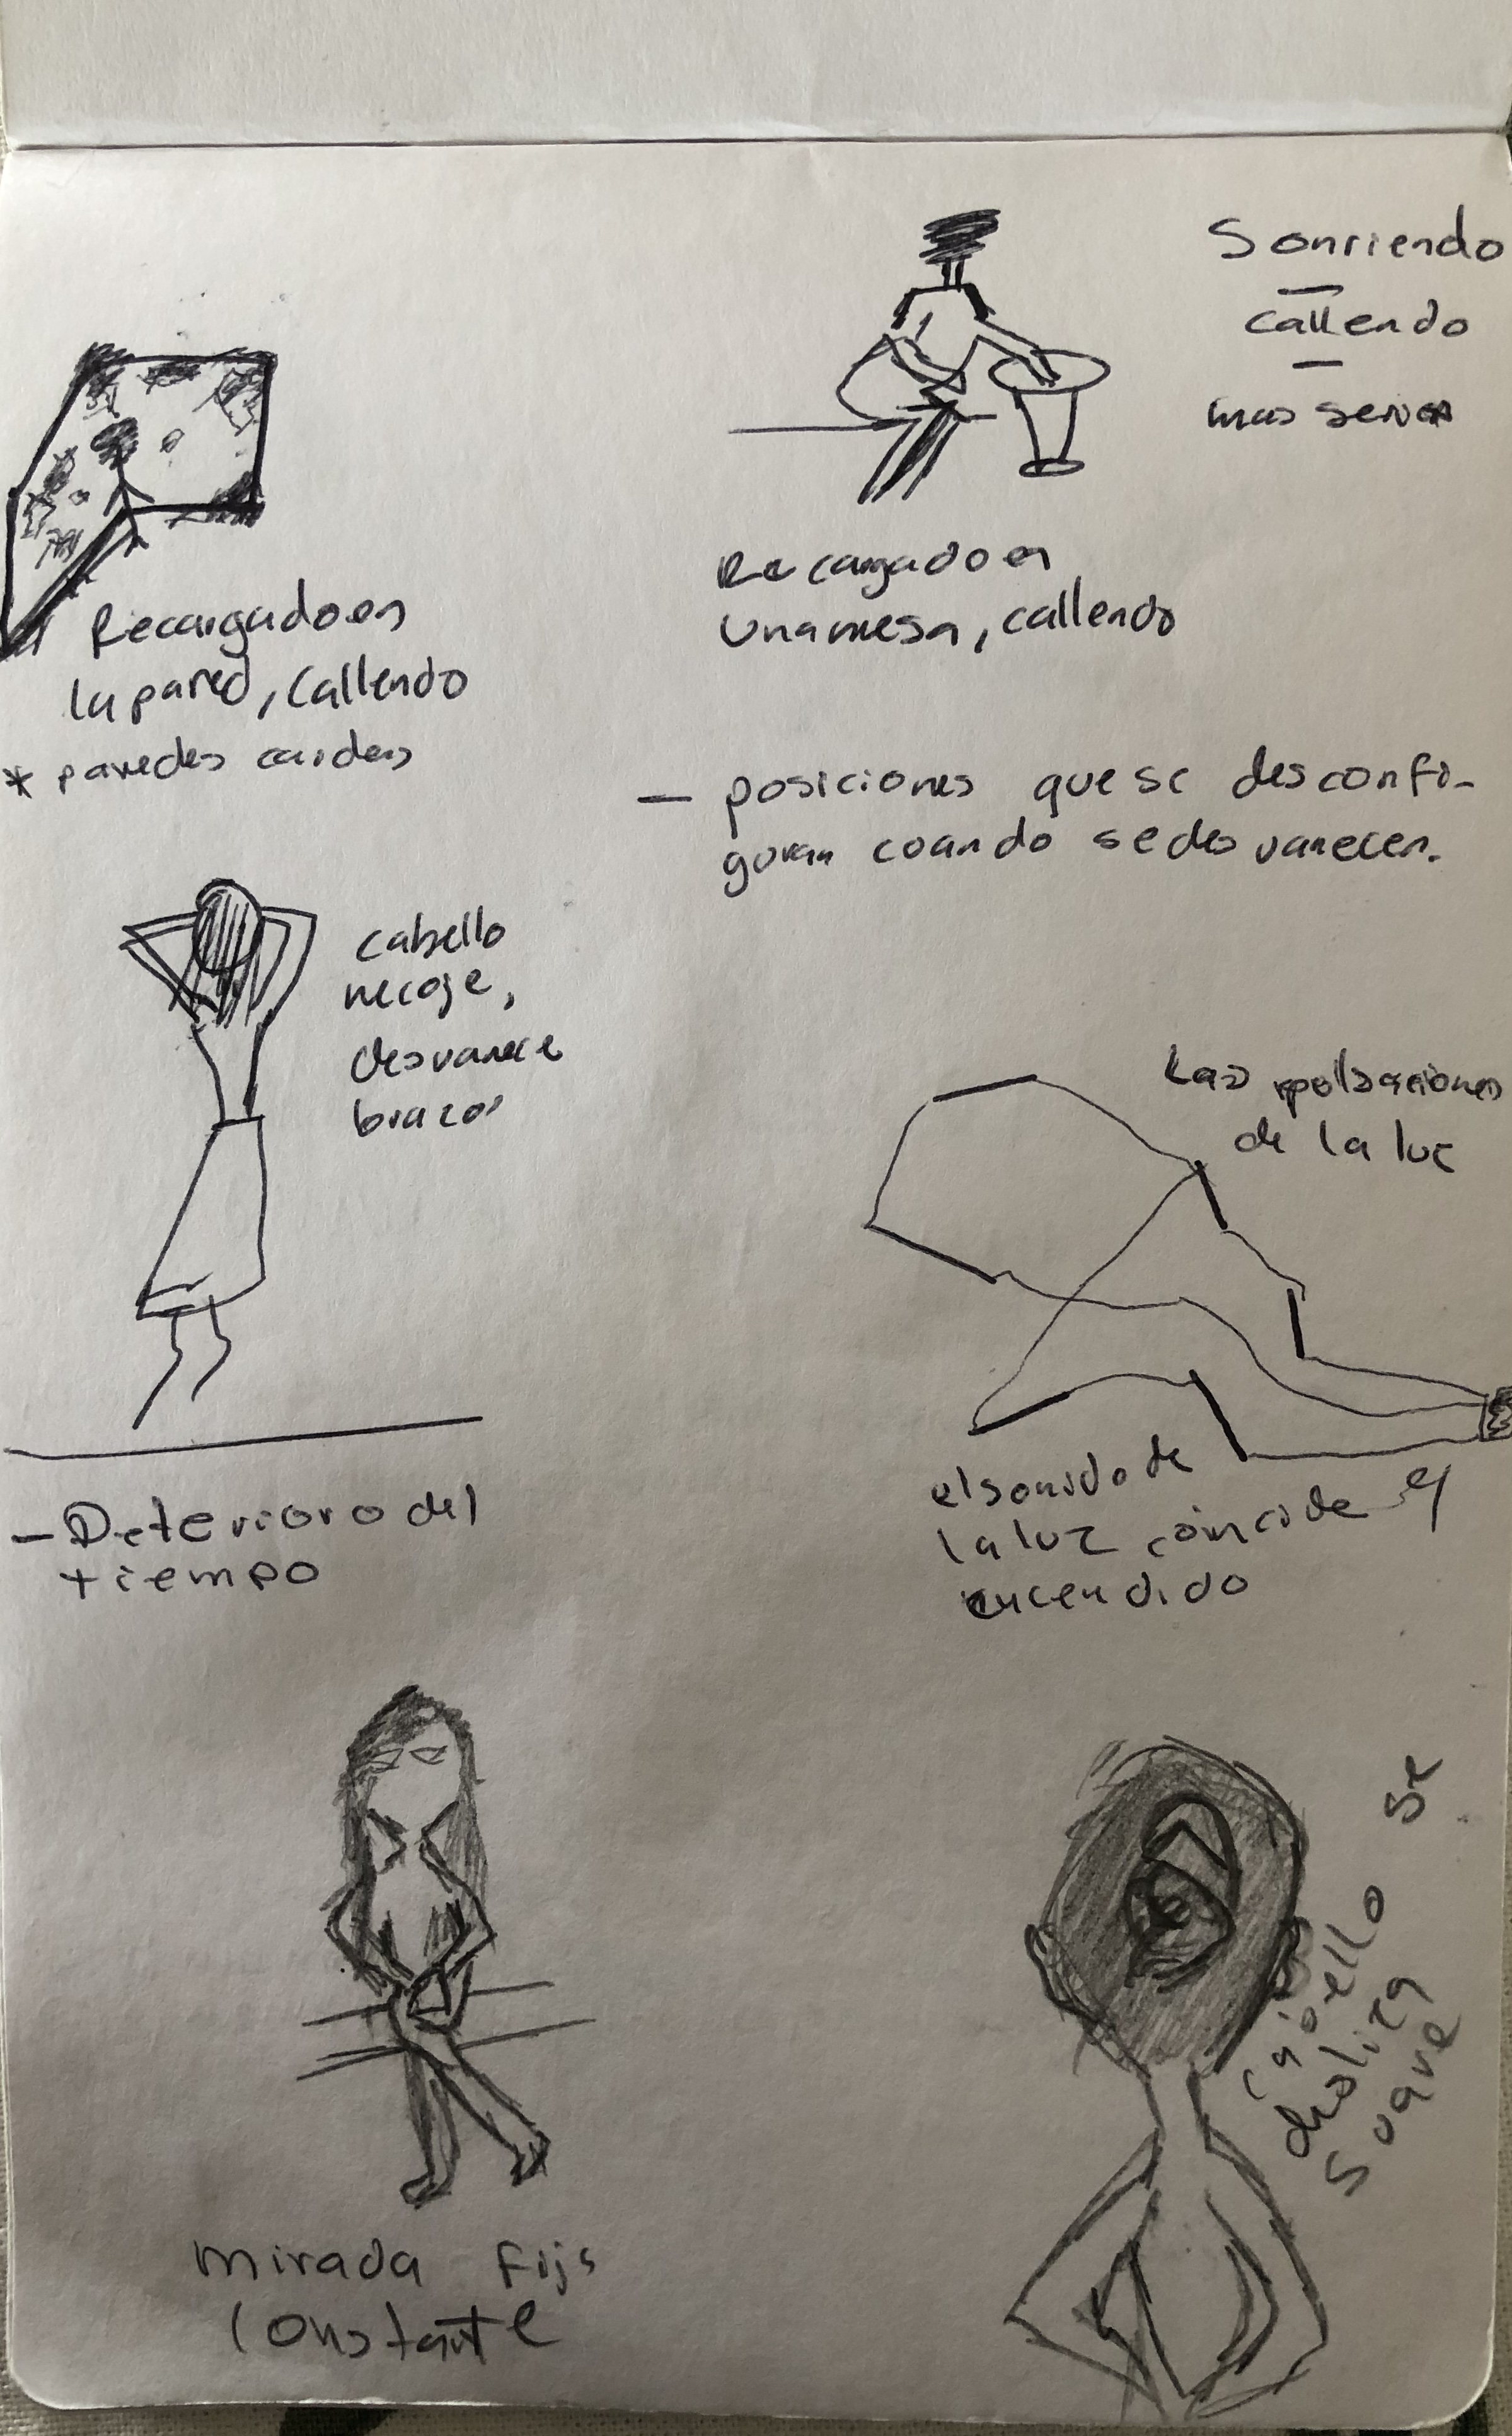 Sonriendo
—
callendo
—
mas serio
Recargado en
la pared, callendo
* paredes caidas
Recargado en
una mesa, callendo
— posiciones que se desconfi-
guran cuando se desvanecen.
cabello
recoge,
desvanece
brazos
Las pulsaciones
de la luz
el sonido de
la luz coincide el
encendido
— Deterioro del
tiempo
mirada fija
constante
cabello se
desliza
suave